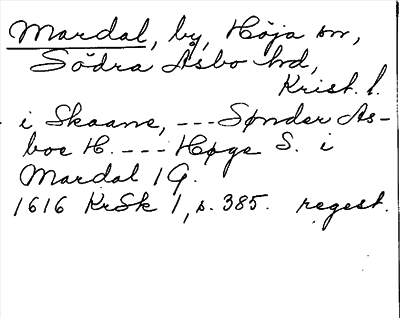 Mardal, by, Höja sn,
Södra Åsbo hd,
Krist. l.
i Skaane, --- Sønder As-
boe H. --- Høge S. i
Mardal 1 G.
1616 KrSk 1, s. 385. regest.